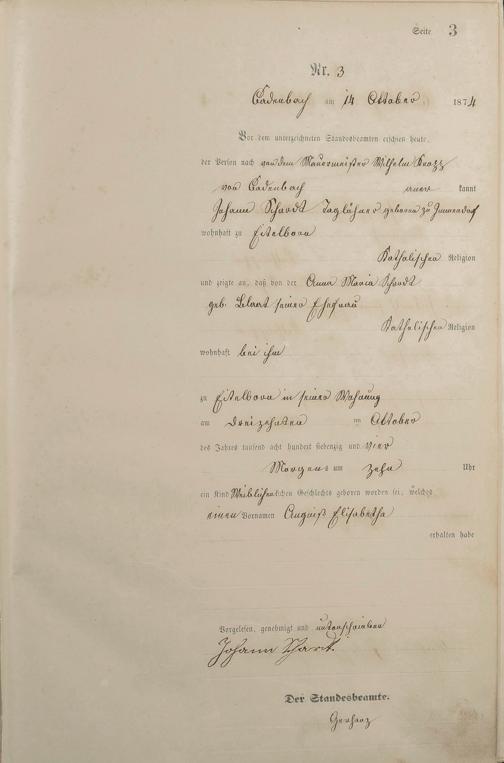 Seite 3
Nr. 3
Cadenbach am 14 Oktober 1874
Vor dem unterzeichneten Standesbeamten erschien heute,
der Person nach von dem Mauermeister Wilhelm
von Cadenbach kannt
Johann Schardt Taglöhner geboren zu Immendorf
wohnhaft zu Eitelborn
Katholischen Religion
und zeigte an, daß von der Anna Maria Schardt
geb. seiner Ehefrau
Katholischen Religion
wohnhaft bei ihm
zu Eitelborn in seiner Wohnung
am dreizehnten Oktober
des Jahres tausend acht hundert siebenzig und vier
Morgens um zehn Uhr
ein Kind Weiblichen lichen Geschlechts geboren worden sei, welches
einen Vornamen Elisabetha
erhalten habe
Vorgelesen, genehmigt und unterschrieben
Johann Schardt
Der Standesbeamte.
Gerharz